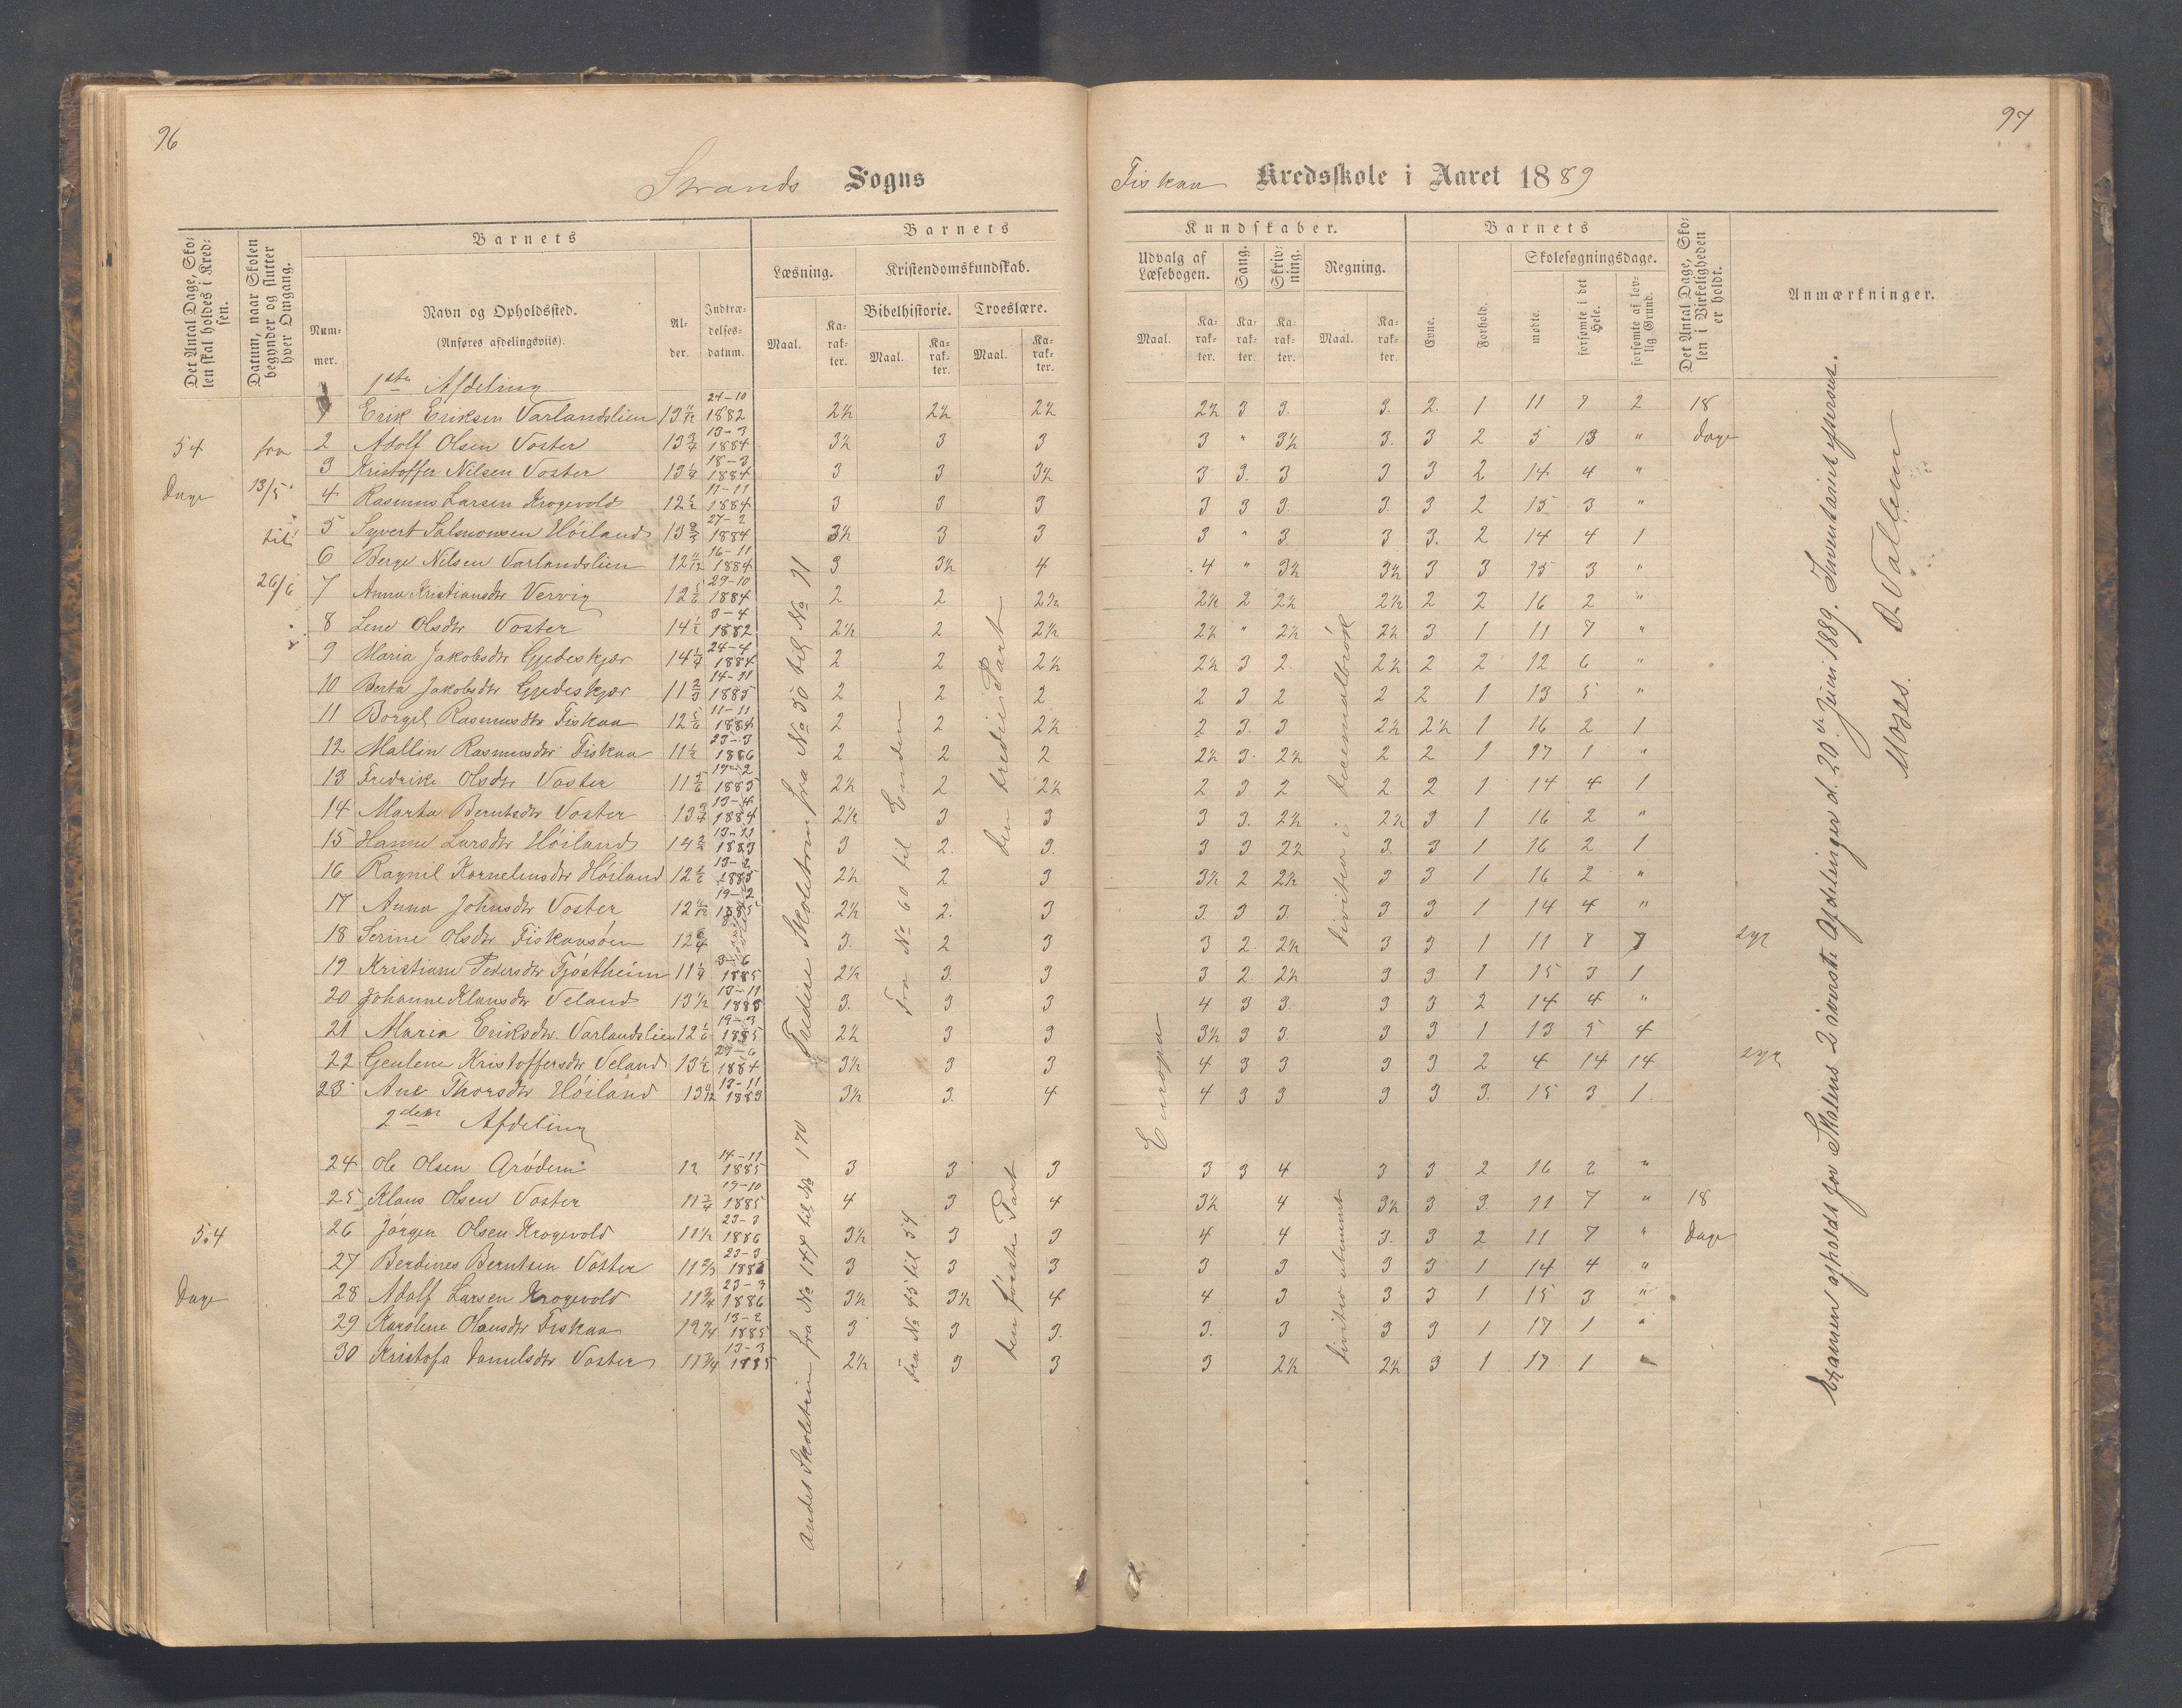 96
97
Strands Sogns
Fiskaa Kredsskole i Aaret 1889
Det Antal Dage, Skolen skal holdes i Kredsen.
Datum, naar Skolen begynder og slutter hver Omgang.
Barnets
Nummer.
Navn og Opholdssted.
(Anføres afdelingsviis).
Alder.
Indtrædelsesdatum.
Barnets
Læsning.
Maal.
Karakter.
Kristendomskundskab.
Bibelhistorie.
Maal.
Karakter.
Troeslære.
Maal.
Karakter.
Kundskaber.
Udvalg af Læsebogen.
Maal.
Karakter.
Sang.
Karakter.
Skrivning.
Karakter.
Regning.
Maal.
Karakter.
Barnets
Evne.
Forhold.
Skolesøgningsdage.
mødte.
forsømte i det Hele.
forsømte af lovlig Grund.
Det Antal Dage, Skolen i Virkeligheden er holdt.
Anmærkninger.
54 Dage
fra 13/5 til 26/6
1ste Afdeling
1 Erik Eriksen Varlandslien 13 11/12 24-10 1882 2½ 2½ 2½ 2½ 3 3. 3. 2. 1 11 7 2 18 Dage
2 Adolf Olsen Voster 13 3/4 13-3 1884 3½ 3 3 3 " 3½ 3. 3 2 5 13 "
3 Kristoffer Nilsen Voster 13 1/4 18-3 1884 3 3 3½ 3 3. 3 3 3 2 14 4 "
4 Rasmus Larsen Krogevold 12 1/2 11-11 1884 3 3 3 3 3 3. 3. 3 2 15 3 "
5 Syvert Salmonsen Høiland 13 2/3 27-2 1884 3½ 3 3 3 " 3 3 3. 2 14 4 1
6 Berge Nilsen Varlandslien 12 11/12 16-11 1884 3 3½ 4 4 " 3½ 3½ 3 3 15 3 "
7 Anna Kristiansdtr Vervig 12 5/6 29-10 1884 2 2 2½ 2½ 2 2½ 2½ 2 2 16 2 "
8 Lene Olsdtr Voster 14 1/2 3-4 1882 2½ 2 2½ 2½ " 2½ 2½ 3 1 11 7 "
9 Maria Jakobsdtr Gjedeskjær 14 1/4 24-4 1884 2 2 2½ 2½ 3 2. 2½ 2 2 12 6 "
10 Berta Jakobsdtr Gjedeskjær 11 2/3 14-11 1885 2 2 2. 2 3 2 2 2 1 13 5 "
11 Borgil Rasmusdtr Fiskaa 12 5/6 11-11 1884 2 2 2½ 2 3. 3 2½ 2½ 1 16 2 1
12 Mallin Rasmusdtr Fiskaa 11 1/2 23-3 1886 2 2 2 2½ 3. 2½ 2 2 1 17 1 "
13 Fredrike Olsdtr Voster 11 5/6 17-2 1885 2½ 2 2½ 2 3 2 2 2 1 14 4 1
14 Marta Berntsdtr Voster 13 3/4 13-4 1884 2½ 3 3 3 3. 2½ 2½ 3 1 16 2 "
15 Hanne Larsdtr Høiland 14 2/3 13-11 1883 3 2. 3. 3 3 2½ 3. 3 1 16 2 1
16 Ragnil Kornelinsdtr Høiland 13-2 1885 2½ 2 3 3½ 2 2½ 3 3 1 16 2 "
17 Anna Johnsdtr Voster 19-2 1885 2½ 2. 3 3. 3 3. 3 3 1 14 4 "
18 Serine Olsdtr Fiskaasøen 3. 2 3 3 2. 2½ 3 3 1 11 7 7 syg
19 Kristiane Pedersdtr Tjøstheim 11 1/4 3-6 1885 2½ 3. 3 3 2. 2½ 3 3. 1 15 3 1
20 Johanne Klausdtr Veland 13 1/2 13-11 1883 3. 3 3 4 3 3. 3 3 2 14 4 "
21 Maria Eriksdtr. Varlandslien 12 1/6 19-3 1885 2½ 3 3 3½ 3 3. 3 3 1 13 5 4
22 Geulene Kristoffersdtr Veland 13 1/2 29-6 1884 3½ 3 3 4 3 3 3 3 2 4 14 14 syg
23 Ane Thorsdtr Høiland 13 11/12 13-11 1883 3½ 3. 4 4 3 3 3 3 3. 15 3 1.
2den Afdeling
24 Ole Olsen Grødem 12 14-11 1885 3 3 3 3 3 4 3 3 2 16 2 "
25 Klaus Olsen Voster 11 3/4 19-10 1885 4 3 4 3½ 4 3½ 3 3. 11 7 " 18 Dage
54 Dage
26 Jørgen Olsen Krogevold 11½ 23-3 1886 3½ 3 3 4 4 3. 3 2 11 7 "
27 Berdines Berntsen Voster 11 2/3 23-3 3 3 3 3 3 3 3 1 14 4 "
28 Adolf Larsen Krogevold 11 3/4 23-3 1886 3½ 3½ 4 4 3 3 3 1 15 3 "
29 Karolene Olausdtr Fiskaa 12 1/4 13-2 1885 3 3 3. 3. 3 3 3 1 17 1 "
30 Kristofa Danielsdtr Voster 11 3/4 13-3 1885 2½ 3 3 3 2½ 2½ 3 1 17 1 "
Tredie Skoletrin fra No 50 til No 71
Fra No 60 til Enden
den tredie Part
Europa
dividere i decemalbrøk
Andet Skoletrin fra No 147 til No 170
Fra No 45 til 54
den første Part
divition ubenævnt
Examen afholdt for Skolens 2 øverste Afdelinger d. 20de Juni 1889. Inventariet efterseet.
Moses. D. Vallem